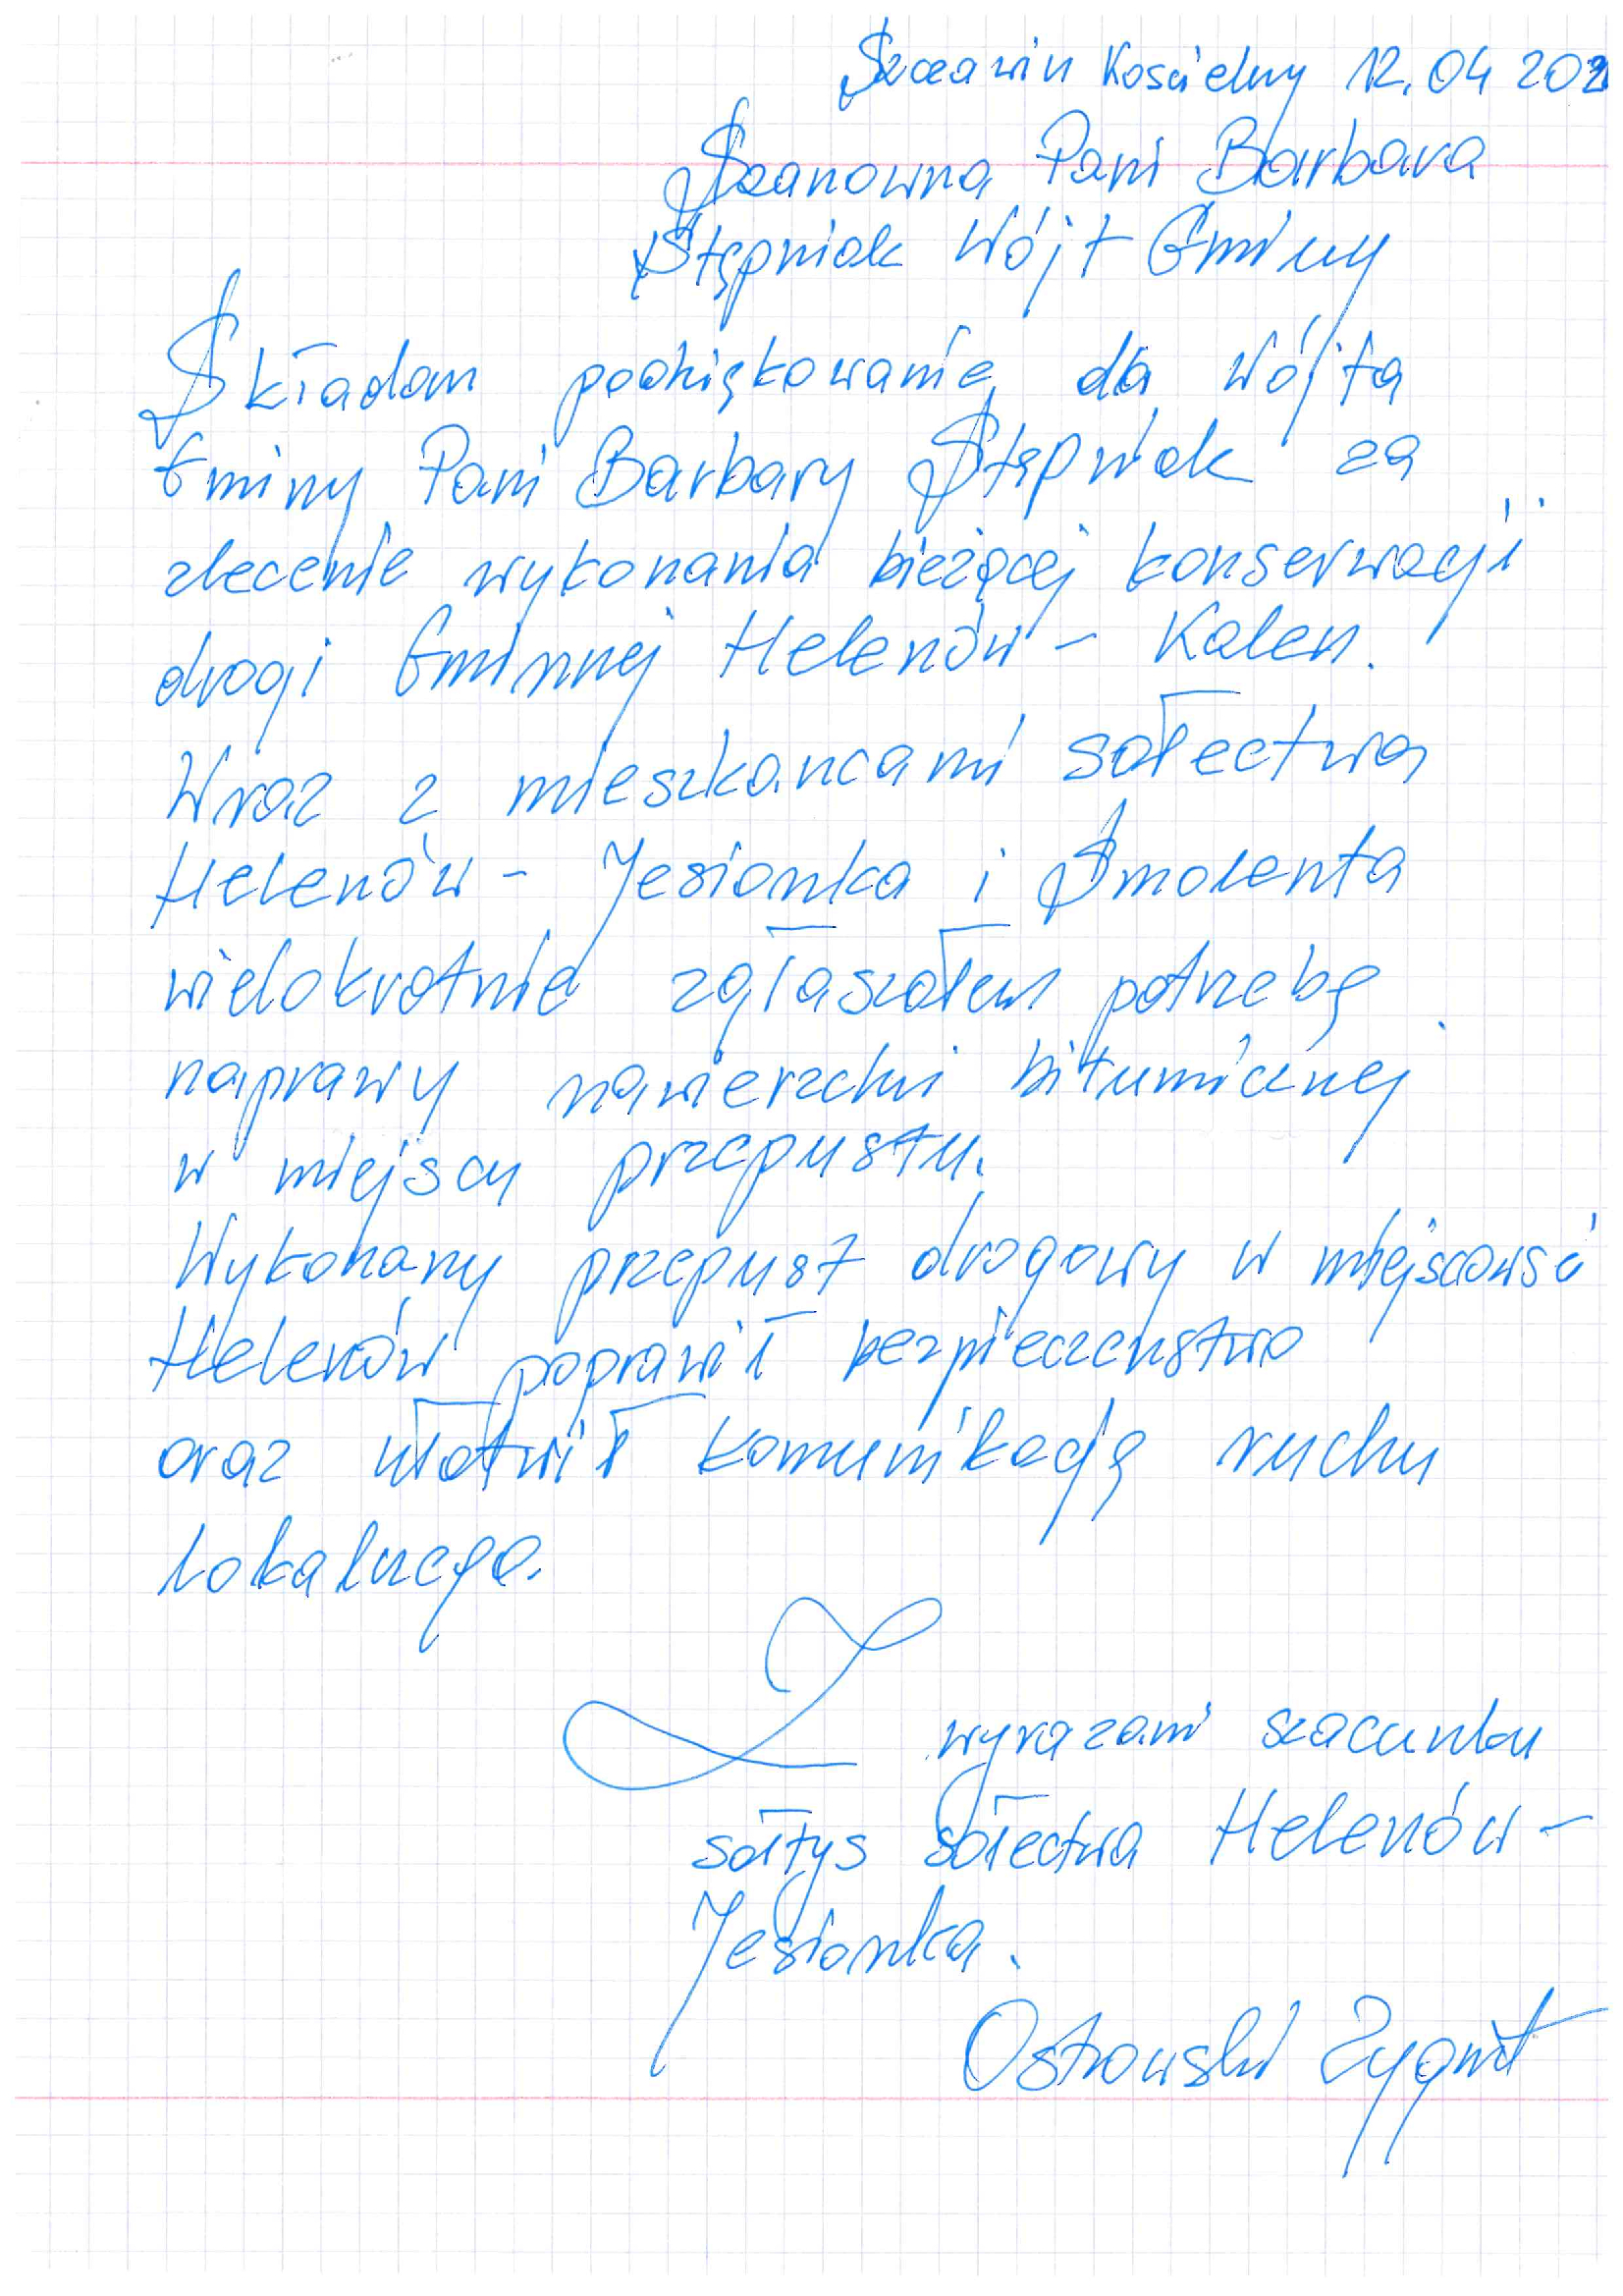 Szczawin Kościelny 12.04 202
Szanowna Pani Barbara
Stępniak Wójt Gminy
Składam podziękowanie dla Wójta
Gminy Pani Barbary Stępniak za
zlecenie wykonania bieżącej konserwacji
drogi Gminnej Helenów - Kaleń.
Wraz z mieszkańcami sołectwa
Helenów - Jesionka i Smolenta
wielokrotnie zgłaszałem potrzebę
naprawy nawierzchni bitumicznej
w miejscu przepustu.
Wykonany przepust drogowy w miejscowść
Helenów poprawił bezpieczeństwo
oraz ułatwił komunikację ruchu
lokalnego.
Z wyrazami szacunku
sołtys sołectwa Helenów -
Jesionka.
Ostrowski Zygmt